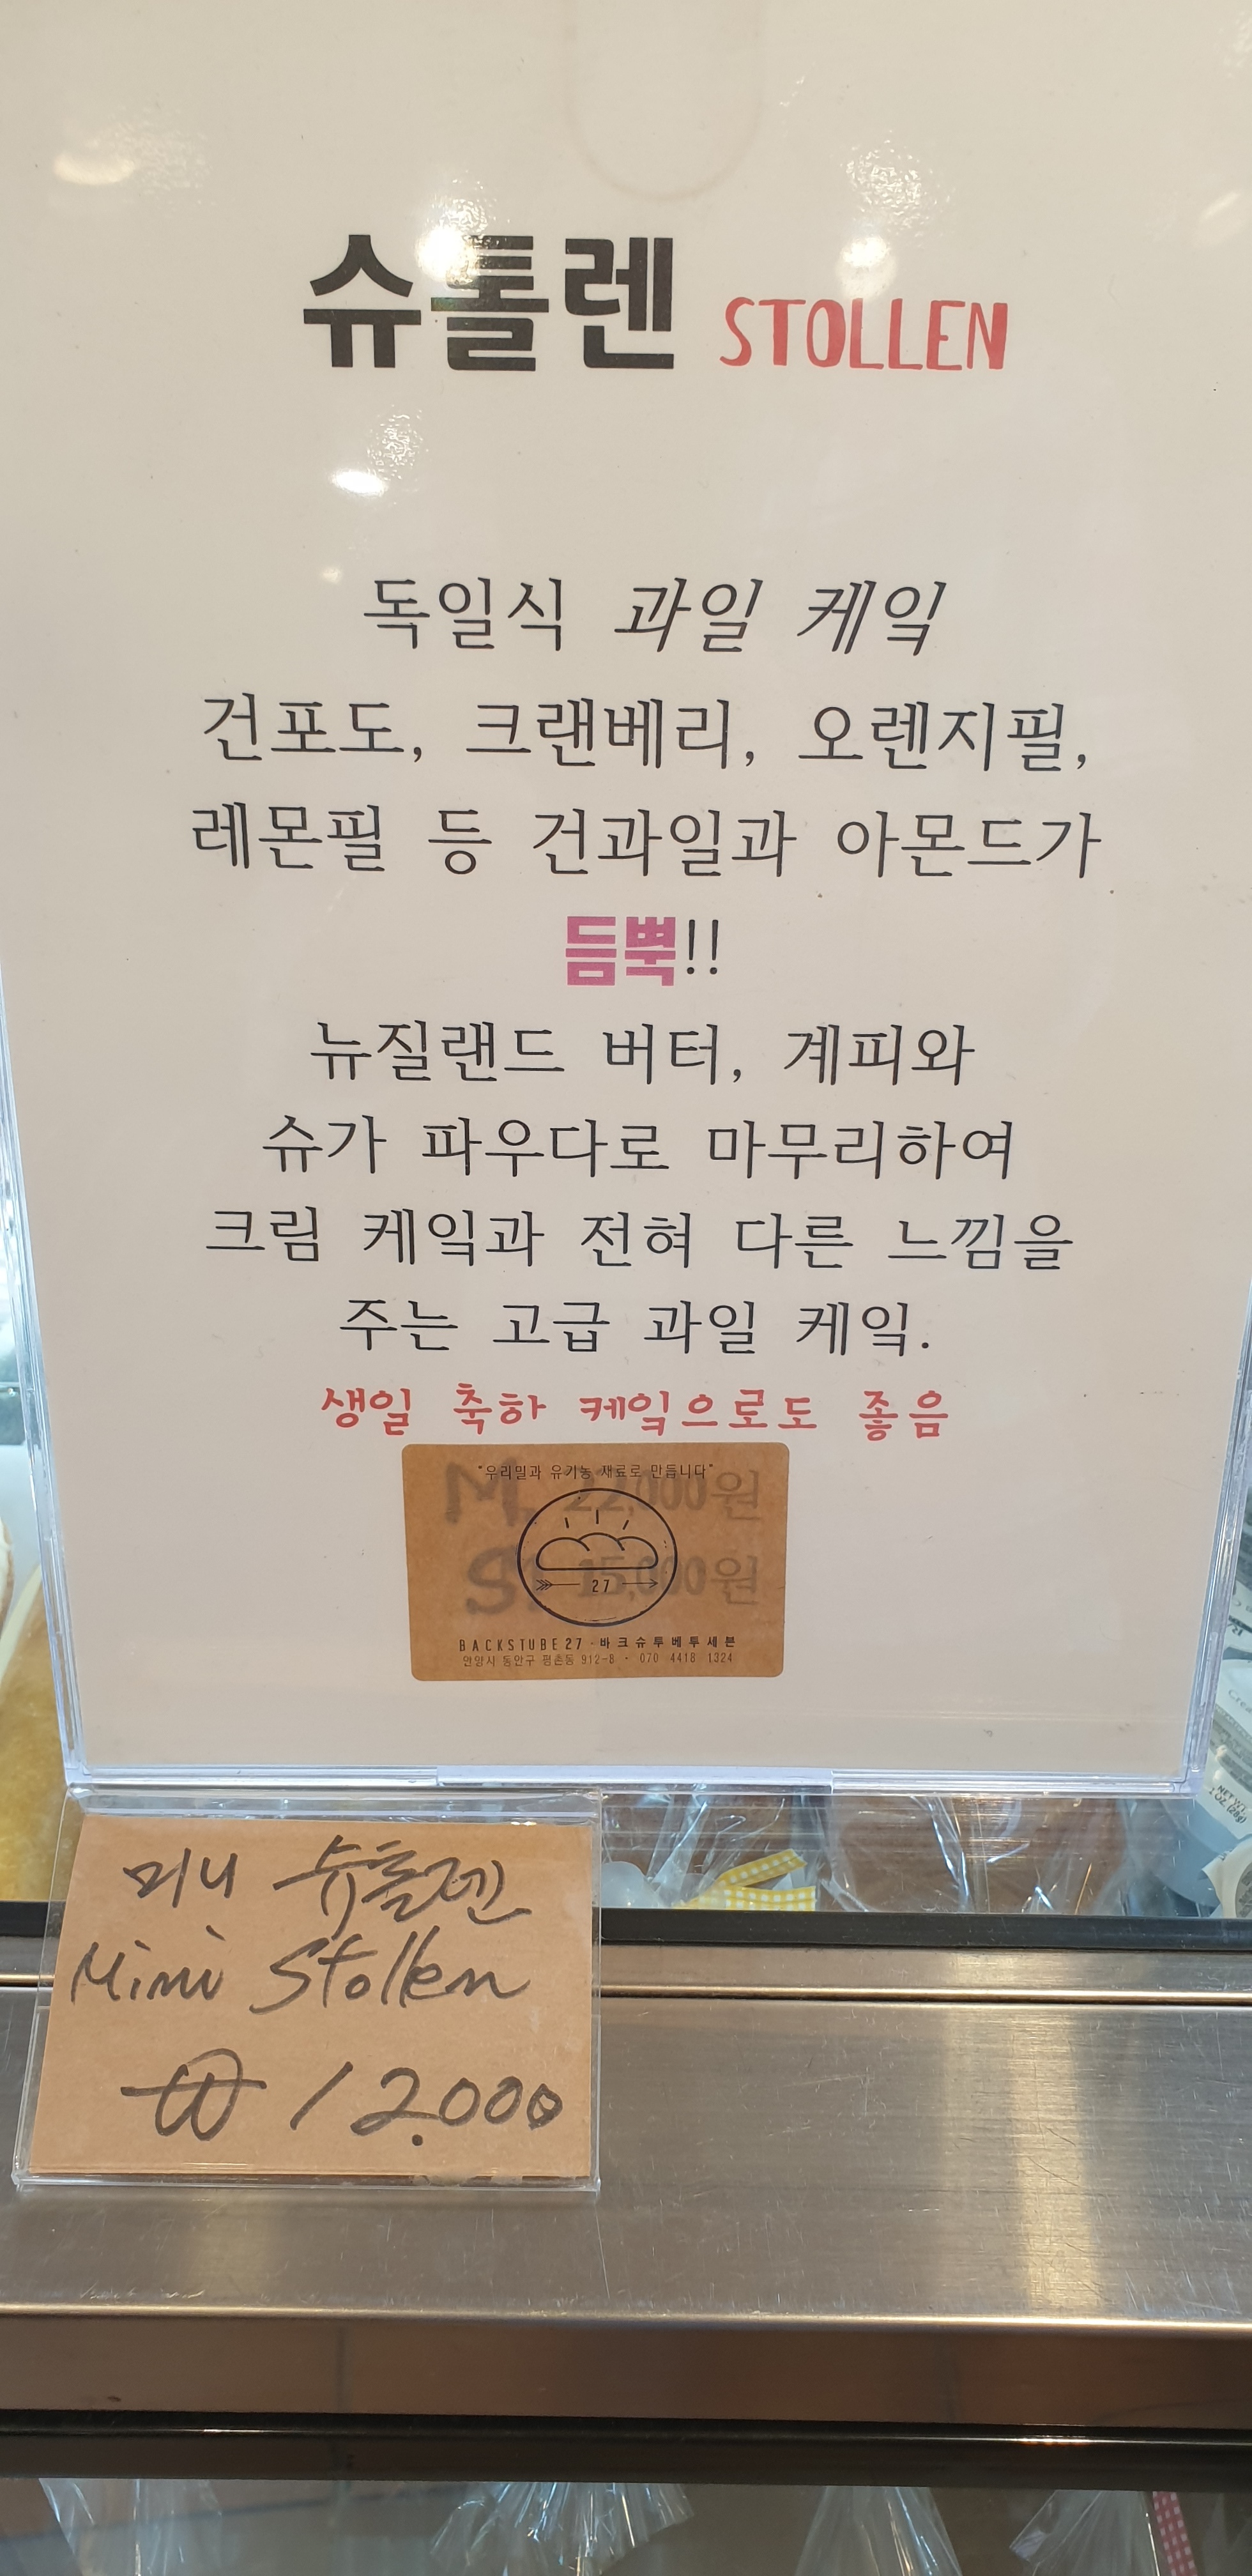 슈톨렌 STOLLEN
독일식 과일 케익
건포도, 크랜베리, 오렌지필,
레몬필 등 건과일과 아몬드가
듬뿍!!
뉴질랜드 버터, 계피와
슈가 파우다로 마무리하여
크림 케익과 전혀 다른 느낌을
주는 고급 과일 케익.
생일 축하 케익으로도 좋음
"우리밀과 유기농 재료로 만듭니다"
M. 22,000원
S. 15,000원
27
BACKSTUBE 27 - 바크슈투베투세븐
안양시 동안구 평촌동 912-8 · 070 4418 1324
미니 슈톨렌
Mini Stollen
₩ 12.000
NET WT.
1 OZ (28g)